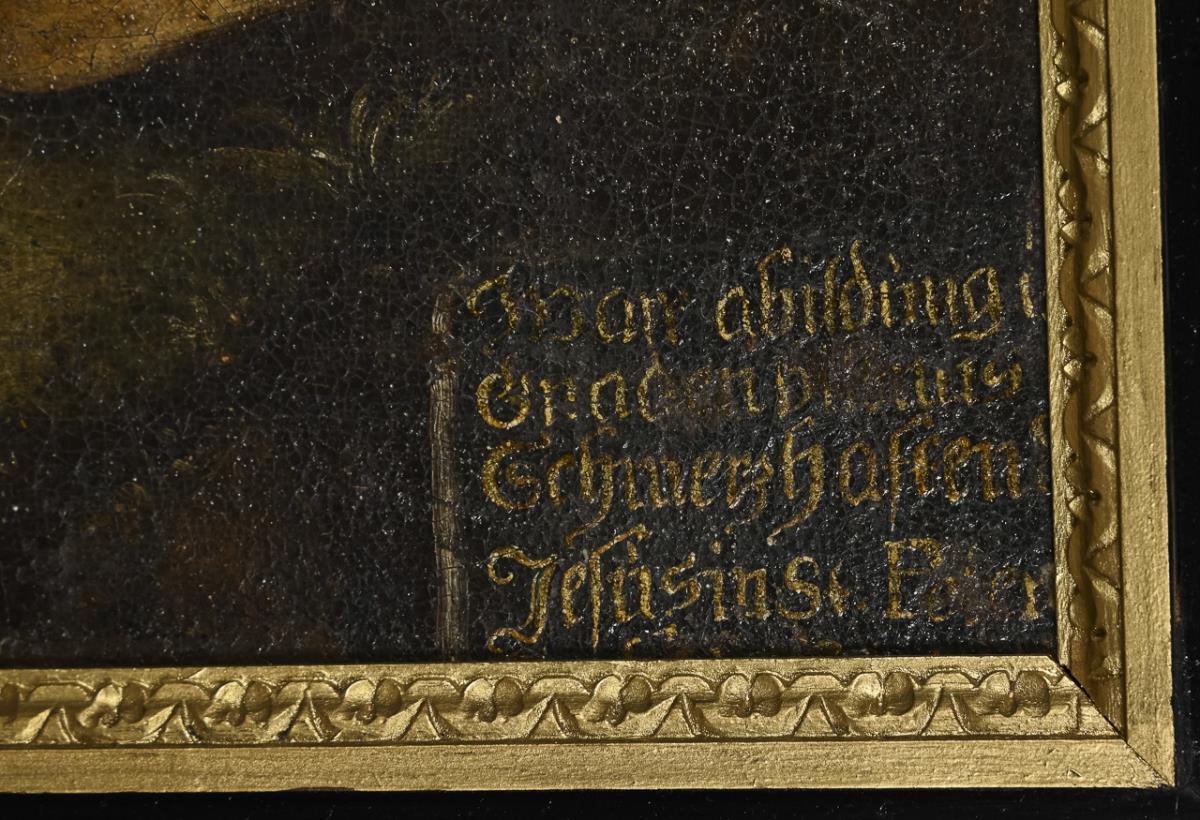 War abildung
Gnaden
Schmerzhaften
Jesus in St. Peter